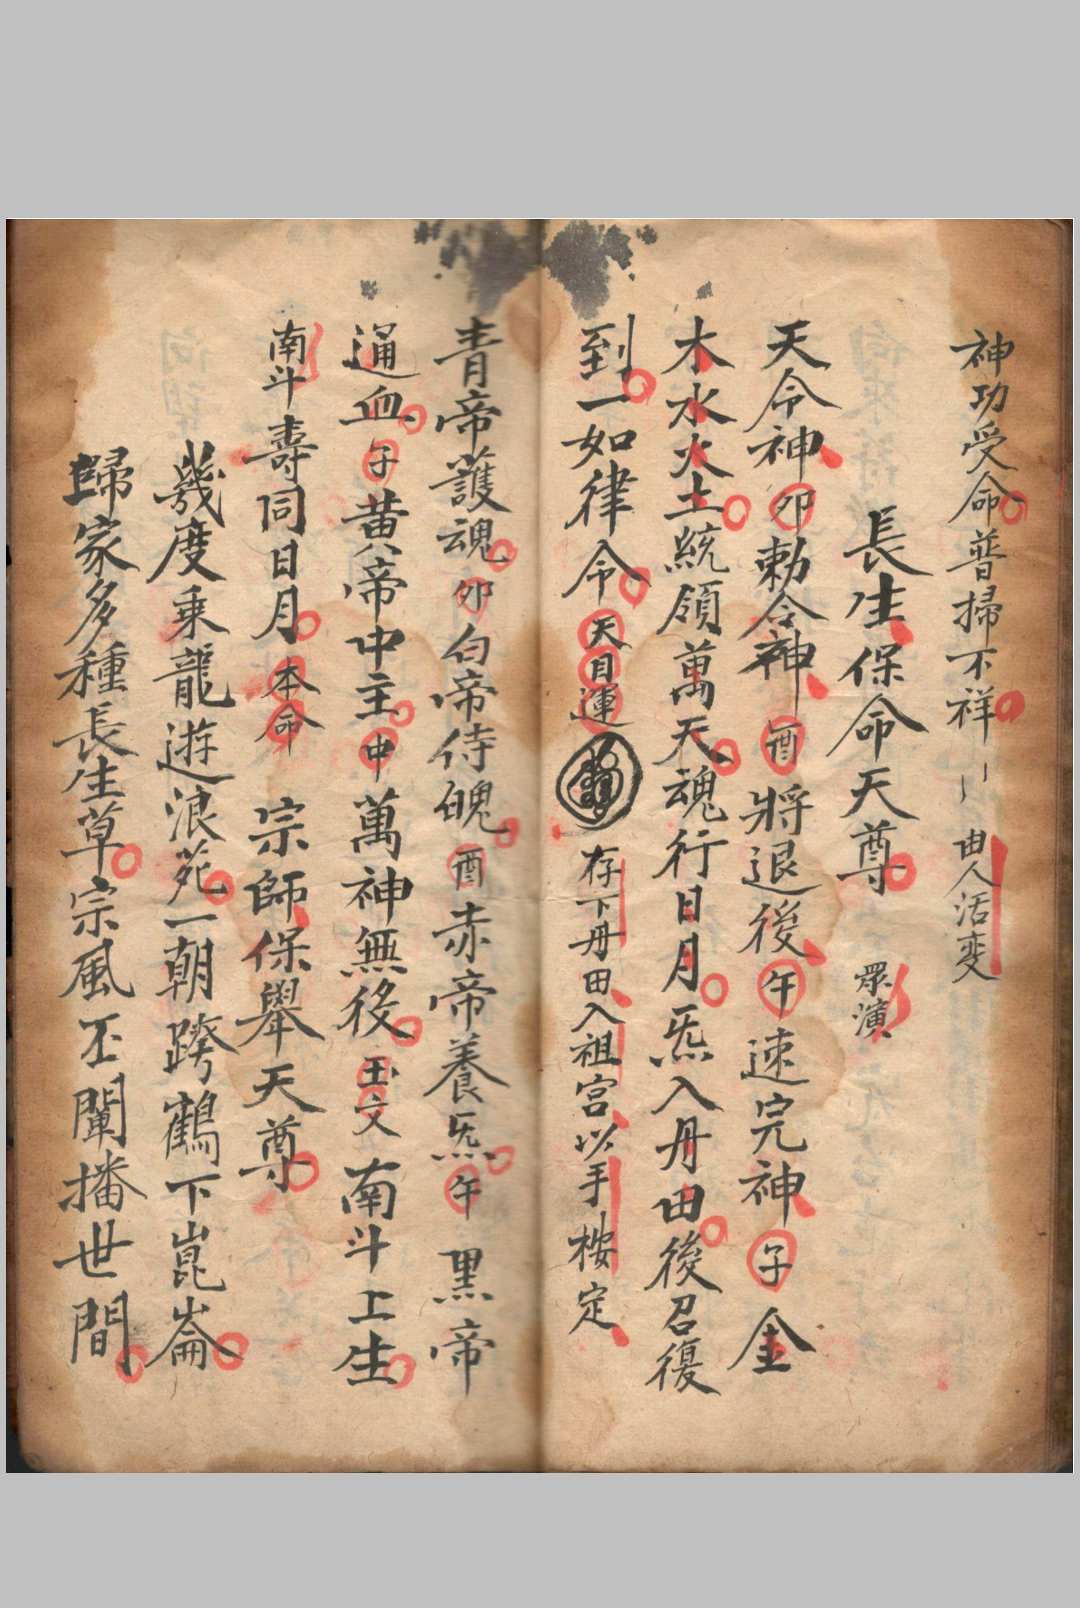 神功受命普掃不祥 由人活变
長生保命天尊 眾演
天令神卯勅令神酉將退後午速完神子金
木水火土統領萬天魂行日月炁入丹田後召復
到一如律令天目運 存下丹田入祖宮以手按定
青帝護魂卯白帝侍魄酉赤帝養炁午黑帝
通血子黄帝中主中萬神無後玉文南斗上生
南斗壽同日月本命 宗師保舉天尊
幾度乗龍遊浪苑一朝跨鶴下崑崙
歸家多種長生草宗風丕闡播世間